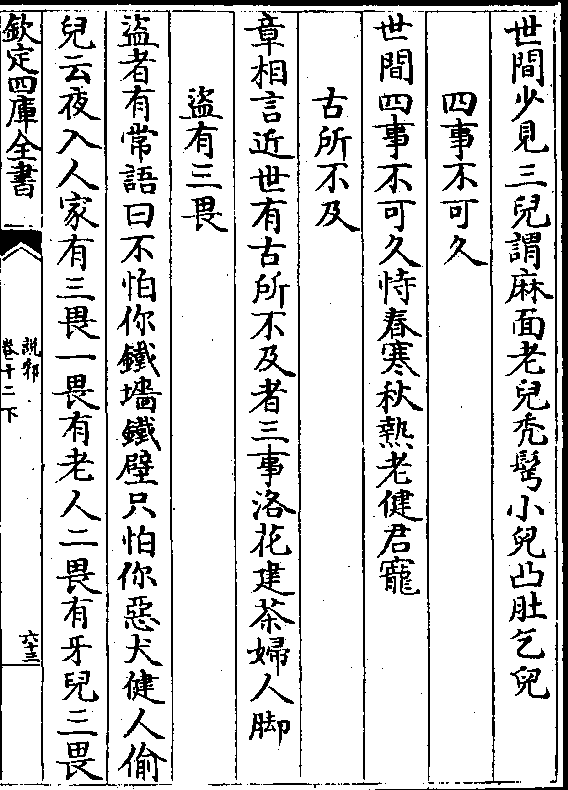 世間少見三兒謂麻面老兒禿髩小兒凸肚乞兒
四事不可久
世間四事不可久恃春寒秋熱老健君寵
古所不及
章相言近世有古所不及者三事洛花建茶婦人脚
盜有三畏
盜者有常語曰不怕你鐵墻鐵壁只怕你惡犬健人偷
兒云夜入人家有三畏一畏有老人二畏有牙兒三畏
欽定四庫全書
說郛
卷十二下
六十三